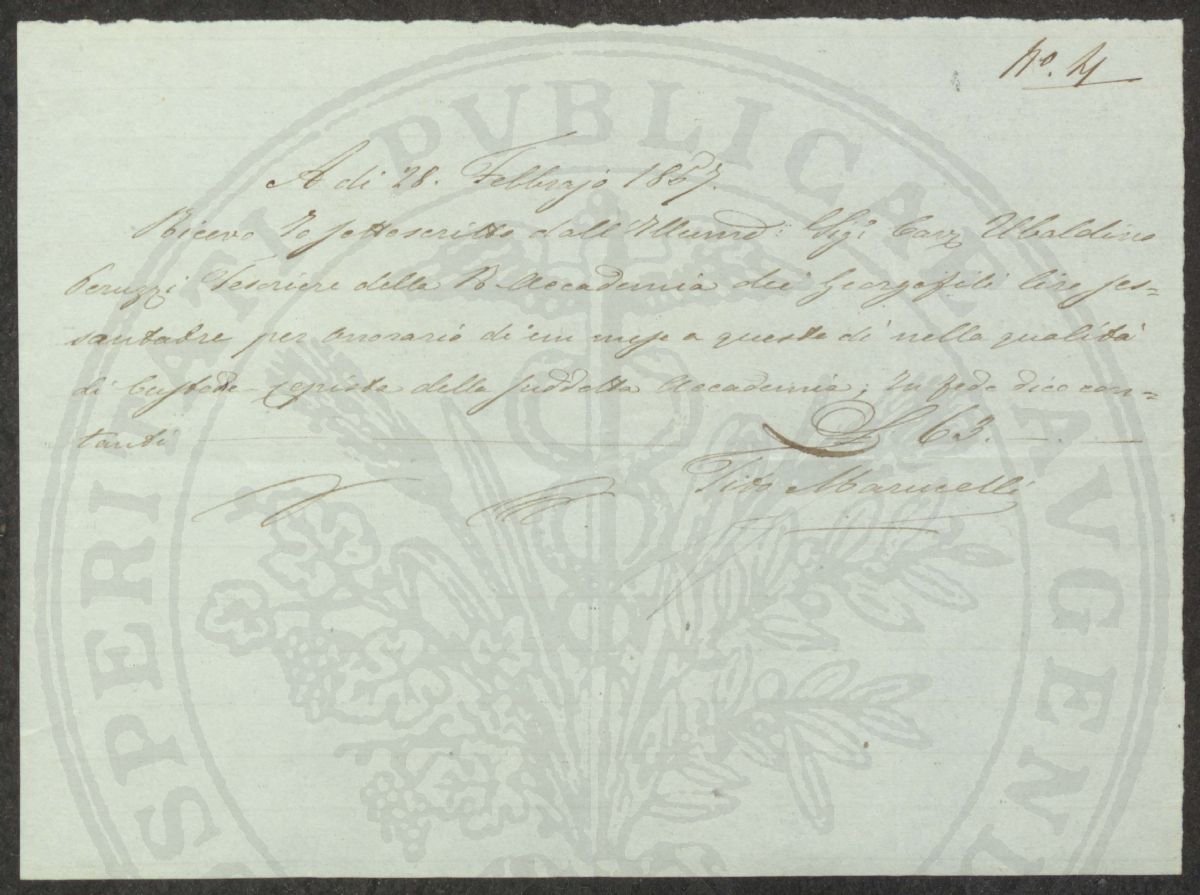 No. 4
A dì 28. Febbrajo 1857.
Ricevo Io sottoscritto dall' Illumo: Sigr Cavr Ubaldino
Peruzzi Tesoriere della R. Accademia dei Georgofili lire ses=
santatre per onorario di un mese a questo dì nella qualità
di Custode Copista della suddetta Accademia; In fede dico con=
tanti £ 63.
Tito Marucelli
PROSPERITATI PVBLICAE AVGENDAE